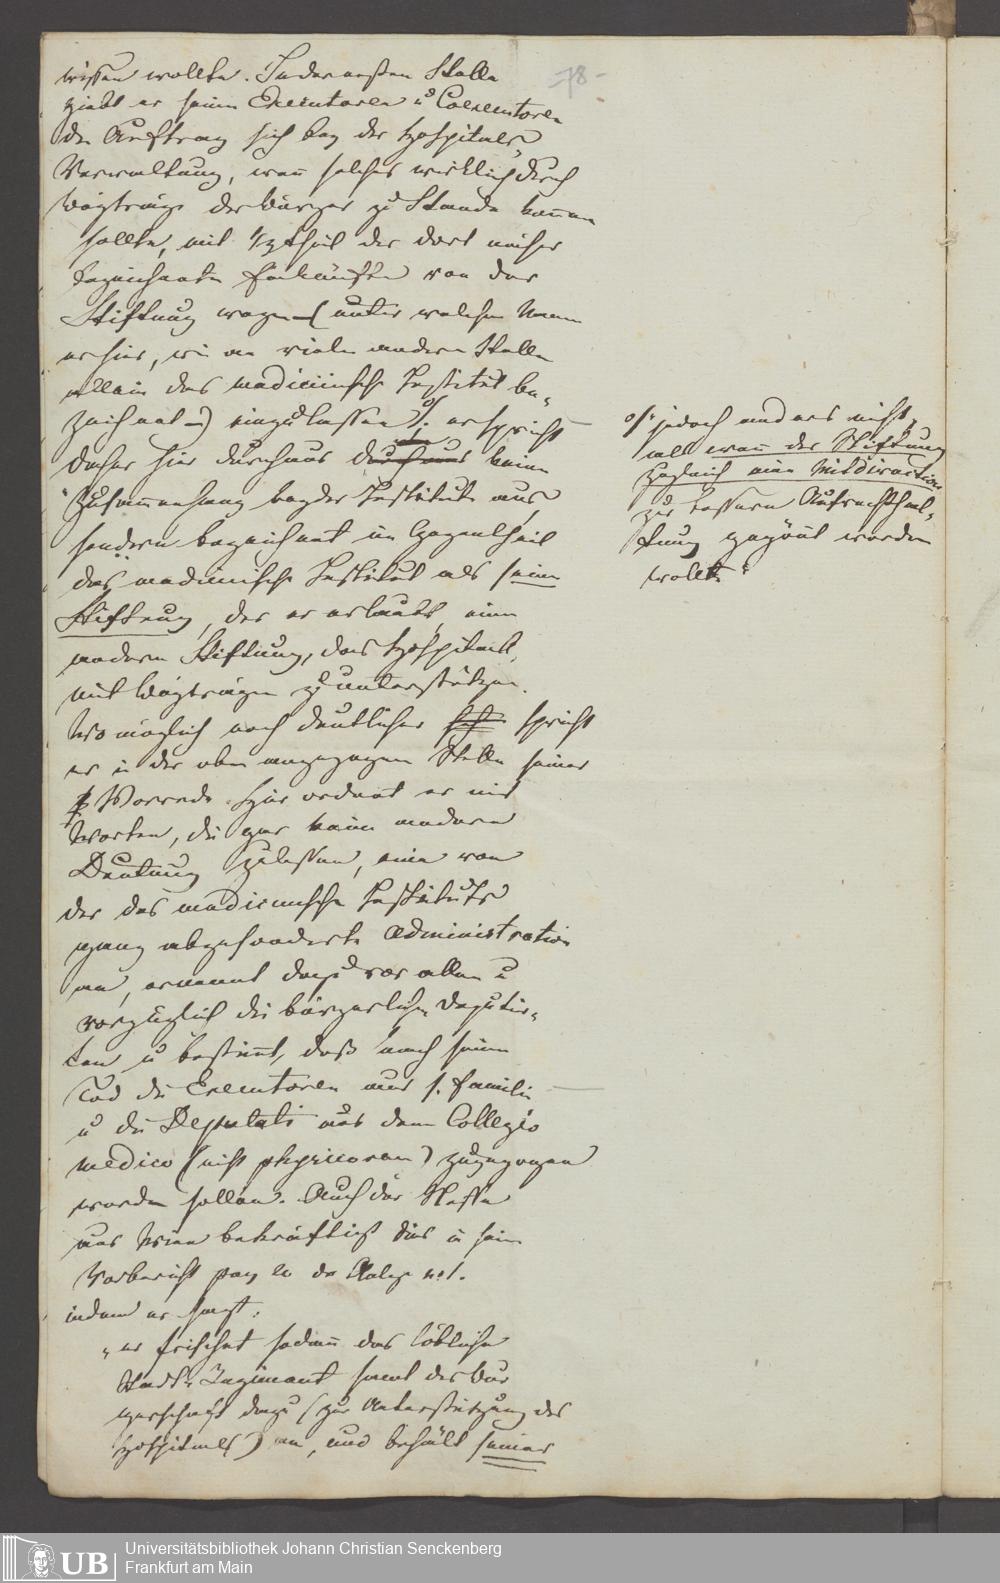 -78-
wissen wollte. In der ersten Stelle
giebt er seinen Executoren u Coexecutoren
den Auftrag sich bey der Hospitals
Verwaltung, wenn solches wirklich durch
Beyträge der Bürger zu Stande kommen
sollte, mit 1/3 theil der dort näher
bezeichneten Einkünfte von der
Stiftung wegen (unter welchem Namen
er hier, wie an vielen andern Stellen
allein das medicinische Institut be-
zeichnet) einzulassen; er spricht
daher hier durchaus durchaus keinen
Zusammenhang beyder Institute aus,
sondern bezeichnet im Gegentheil
das medicinische Institut als seine
Stiftung, der er erlaubt, eine
andere Stiftung, das Hospital,
mit Beyträgen zu unterstützen.
Wo möglich noch deutlicher spricht
er in der oben angezogenen Stelle seiner
Vorrede. Hier ordnet er mit
Worten, die gar keine andere
Deutung zulassen, eine von
der des medicinischen Instituts
ganz abgesonderte Administration
an, ernennt dazu vor allen u
vorzüglich die bürgerlichen Deputir-
ten u bestimt, daß nach seinem
Tod die Executoren aus s. Familie
u die Deputati aus dem Collegio
medico (nicht physicorum) zugezogen
werden sollen. Auch der Neffe
aus Wien bekräftigt dies in seinem
Vorbericht pag 20 der Beylage n: 1.
indem er sagt:
"er frischet sodann das löbliche
Stadt-Regiment samt der Bur
gerschaft dazu (zur Unterstützung des
Hospitals) an, und behält seiner
jedoch anders nicht,
als wann der Stiftung
zugleich eine Mitdirection
zur bessern Aufrechthal-
tung gegönnt werden
wollte
UB
Universitätsbibliothek Johann Christian Senckenberg
Frankfurt am Main